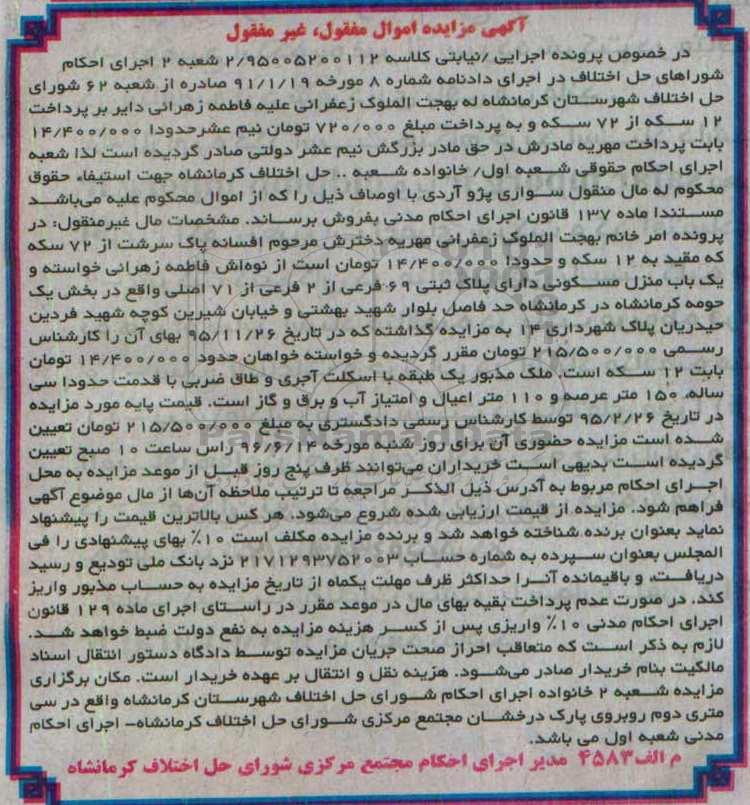 آگهی مزایده اموال مفقول، غیر مفقول
در خصوص پرونده اجرایی /نیابتی کلاسه ۲/۹۵۰۰۵۲۰۰۱۱۲ شعبه ۲ اجرای احکام
شوراهای حل اختلاف در اجرای دادنامه شماره ۸ مورخه ۹۱/۱/۱۹ صادره از شعبه ۶۲ شورای
حل اختلاف شهرستان کرمانشاه له بهجت الملوک زعفرانی علیه فاطمه زهرائی دایر بر پرداخت
۱۲ سکه از ۷۲ سکه و به پرداخت مبلغ ۷۲۰/۰۰۰ تومان نیم عشرحدودا ۱۴/۴۰۰/۰۰۰
بابت پرداخت مهریه مادرش در حق مادر بزرگش نیم عشر دولتی صادر گردیده است لذا شعبه
اجرای احکام حقوقی شعبه اول/ خانواده شعبه .. حل اختلاف کرمانشاه جهت استیفاء حقوق
محکوم له مال منقول سواری پژو آردی با اوصاف ذیل را که از اموال محکوم علیه می‌باشد
مستندا ماده ۱۳۷ قانون اجرای احکام مدنی بفروش برساند. مشخصات مال غیرمنقول: در
پرونده امر خانم بهجت الملوک زعفرانی مهریه دخترش مرحوم افسانه پاک سرشت از ۷۲ سکه
که مقید به ۱۲ سکه و حدودا ۱۴/۴۰۰/۰۰۰ تومان است از نوه‌اش فاطمه زهرائی خواسته و
یک باب منزل مسکونی دارای پلاک ثبتی ۶۹ فرعی از ۲ فرعی از ۷۱ اصلی واقع در بخش یک
حومه کرمانشاه در کرمانشاه حد فاصل بلوار شهید بهشتی و خیابان شیرین کوچه شهید فردین
حیدریان پلاک شهرداری ۱۴ به مزایده گذاشته که در تاریخ ۹۵/۱۱/۲۶ بهای آن را کارشناس
رسمی ۲۱۵/۵۰۰/۰۰۰ تومان مقرر گردیده و خواسته خواهان حدود ۱۴/۴۰۰/۰۰۰ تومان
بابت ۱۲ سکه است. ملک مذبور یک طبقه با اسکلت آجری و طاق ضربی با قدمت حدودا سی
ساله، ۱۵۰ متر عرصه و ۱۱۰ متر اعیال و امتیاز آب و برق و گاز است. قیمت پایه مورد مزایده
در تاریخ ۹۵/۲/۲۶ توسط کارشناس رسمی دادگستری به مبلغ ۲۱۵/۵۰۰/۰۰۰ تومان تعیین
شده است مزایده حضوری آن برای روز شنبه مورخه ۹۶/۶/۱۴ راس ساعت ۱۰ صبح تعیین
گردیده است بدیهی است خریداران می‌توانند ظرف پنج روز قبل از موعد مزایده به محل
اجرای احکام مربوط به آدرس ذیل الذکر مراجعه تا ترتیب ملاحظه آن‌ها از مال موضوع آگهی
فراهم شود. مزایده از قیمت ارزیابی شده شروع می‌شود. هر کس بالاترین قیمت را پیشنهاد
نماید بعنوان برنده شناخته خواهد شد و برنده مزایده مکلف است ۱۰٪ بهای پیشنهادی را فی
المجلس بعنوان سپرده به شماره حساب ۲۱۷۱۲۹۳۷۵۲۰۰۳ نزد بانک ملی تودیع و رسید
دریافت، و باقیمانده آنرا حداکثر ظرف مهلت یکماه از تاریخ مزایده به حساب مذبور واریز
کند. در صورت عدم پرداخت بقیه بهای مال در موعد مقرر در راستای اجرای ماده ۱۲۹ قانون
اجرای احکام مدنی ۱۰٪ واریزی پس از کسر هزینه مزایده به نفع دولت ضبط خواهد شد.
لازم به ذکر است که متعاقب احراز صحت جریان مزایده توسط دادگاه دستور انتقال اسناد
مالکیت بنام خریدار صادر می‌شود. هزینه نقل و انتقال بر عهده خریدار است. مکان برگزاری
مزایده شعبه ۲ خانواده اجرای احکام شورای حل اختلاف شهرستان کرمانشاه واقع در سی
متری دوم روبروی پارک درخشان مجتمع مرکزی شورای حل اختلاف کرمانشاه– اجرای احکام
مدنی شعبه اول می باشد.
م الف۴۵۸۳ مدیر اجرای احکام مجتمع مرکزی شورای حل اختلاف کرمانشاه